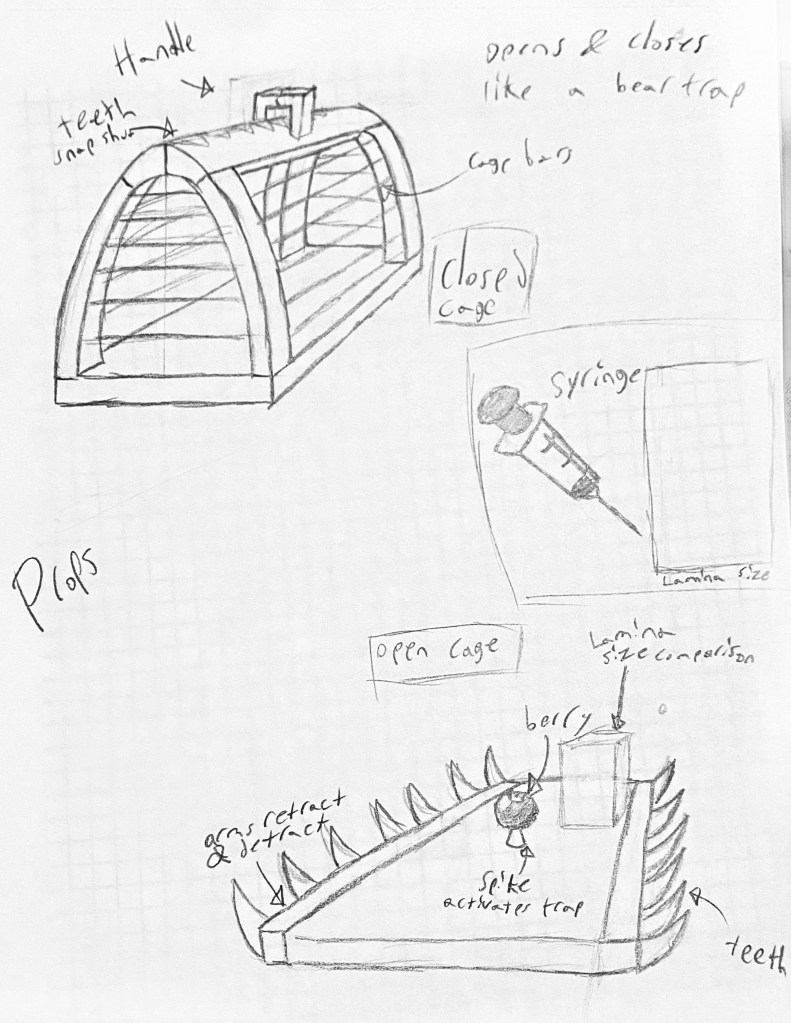 Handle
teeth
snap shut
opens & closes
like a bear trap
cage bars
closed
cage
syringe
Lamina size
Props
open cage
Lamina
size comparison
berry
arms retract
& detract
spike
activates trap
teeth